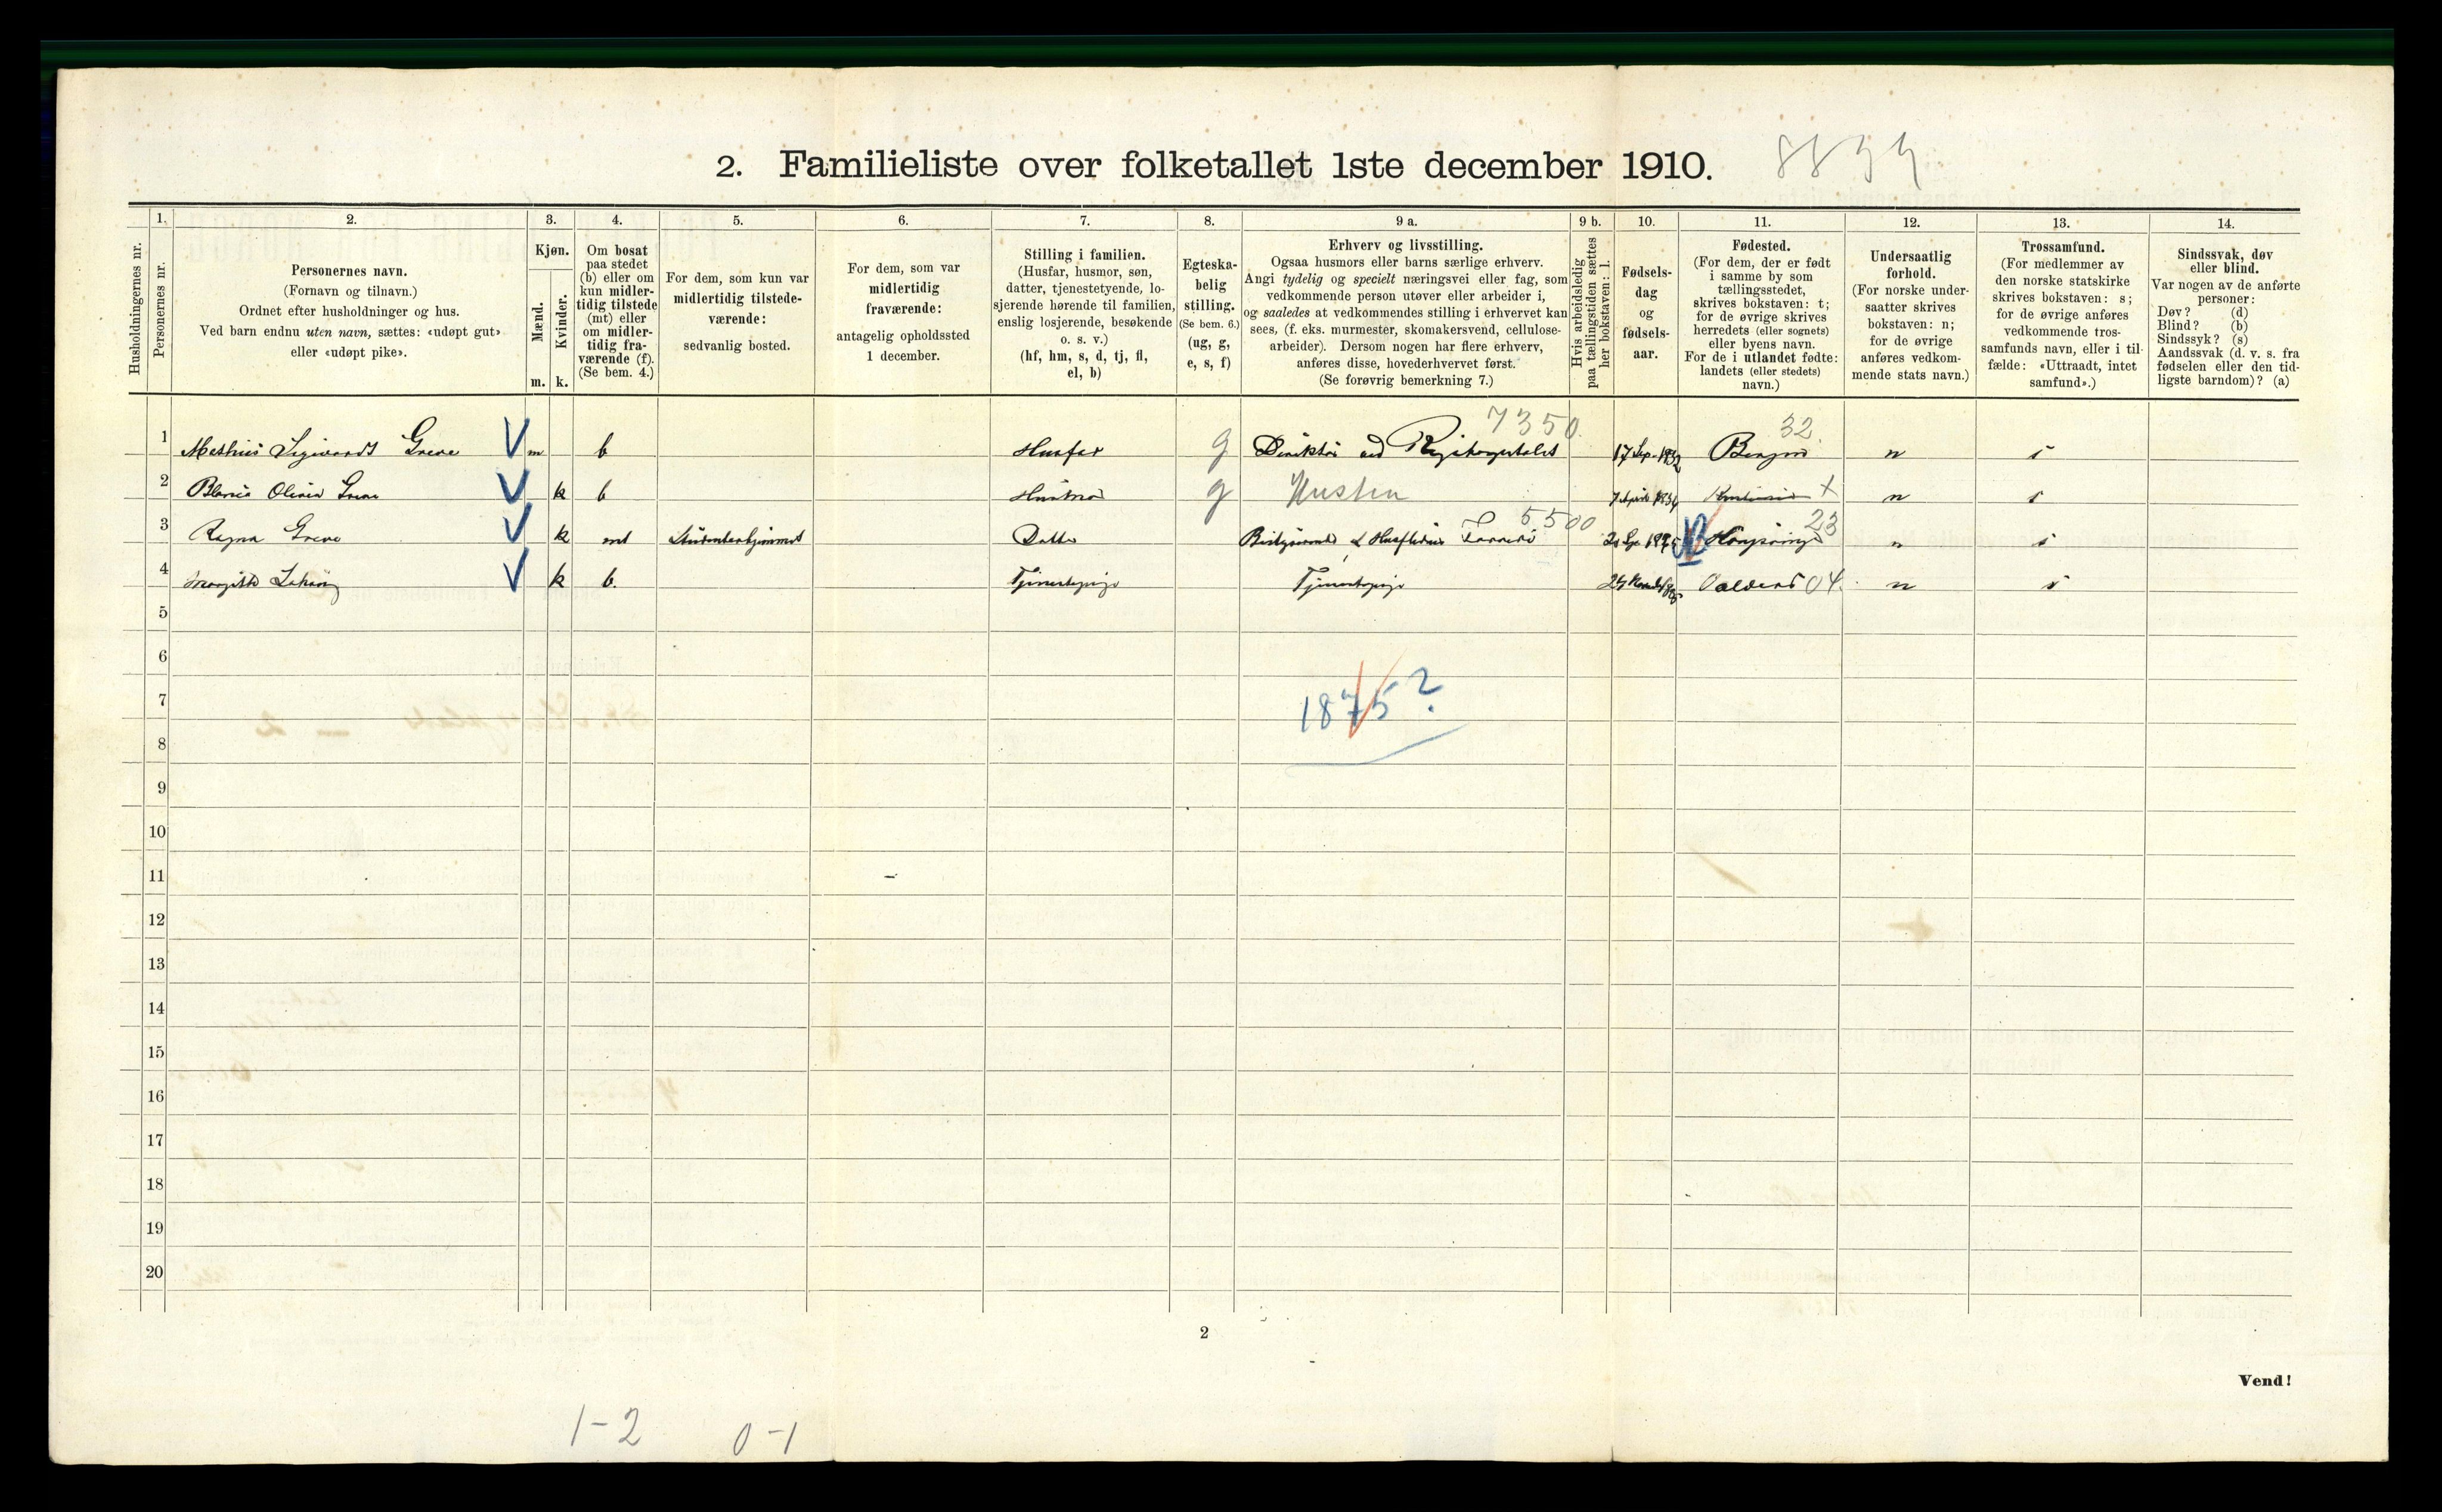 2. Familieliste over folketallet 1ste december 1910.
Husholdningernes nr.
1.
Personernes nr.
2.
Personernes navn.
(Fornavn og tilnavn.)
Ordnet efter husholdninger og hus.
Ved barn endnu uten navn, sættes: «udøpt gut»
eller «udøpt pike».
3.
Kjøn.
Mænd.
Kvinder.
m.
k.
4.
Om bosat
paa stedet
(b) eller om
kun midler-
tidig tilstede
(mt) eller
om midler-
tidig fra-
værende (f).
(Se bem. 4.)
5.
For dem, som kun var
midlertidig tilstede-
værende:
sedvanlig bosted.
6.
For dem, som var
midlertidig
fraværende:
antagelig opholdssted
1 december.
7.
Stilling i familien.
(Husfar, husmor, søn,
datter, tjenestetyende, lo-
sjerende hørende til familien,
enslig losjerende, besøkende
o. s. v.)
(hf, hm, s, d, tj, fl,
el, b)
8.
Egteska-
belig
stilling.
(Se bem. 6.)
(ug, g,
e, s, f)
9 a.
Erhverv og livsstilling.
Ogsaa husmors eller barns særlige erhverv.
Angi tydelig og specielt næringsvei eller fag, som
vedkommende person utøver eller arbeider i,
og saaledes at vedkommendes stilling i erhvervet kan
sees, (f. eks. murmester, skomakersvend, cellulose-
arbeider). Dersom nogen har flere erhverv,
anføres disse, hovederhvervet først.
(Se forøvrig bemerkning 7.)
9 b.
Hvis arbeidsledig
paa tællingstiden sættes
her bokstaven: l.
10.
Fødsels-
dag
og
fødsels-
aar.
11.
Fødested.
(For dem, der er født
i samme by som
tællingsstedet,
skrives bokstaven: t;
for de øvrige skrives
herredets (eller sognets)
eller byens navn.
For de i utlandet fødte:
landets (eller stedets)
navn.)
12.
Undersaatlig
forhold.
(For norske under-
saatter skrives
bokstaven: n;
for de øvrige
anføres vedkom-
mende stats navn.)
13.
Trossamfund.
(For medlemmer av
den norske statskirke
skrives bokstaven: s;
for de øvrige anføres
vedkommende tros-
samfunds navn, eller i til-
fælde: «Uttraadt, intet
samfund».)
14.
Sindssvak, døv
eller blind.
Var nogen av de anførte
personer:
Døv? (d)
Blind? (b)
Sindssyk? (s)
Aandssvak (d. v. s. fra
fødselen eller den tid-
ligste barndom)? (a)
7350 32
1 Greve V m b Husfar g Direktør ved Rigshospitalet 17 Sep. Bergen n s
2 Olivia Greve V k b Husmor g Hustru 7 April + n s
5500 23
3 Ragna Greve V k mt Datter n s
4 V k b. Tjenestepige Tjenestepige Valders 04. n s
5
6
7 1875?
8
9
10
11
12
13
14
15
16
17
18
19
20
2
Vend!
1-2 0-1